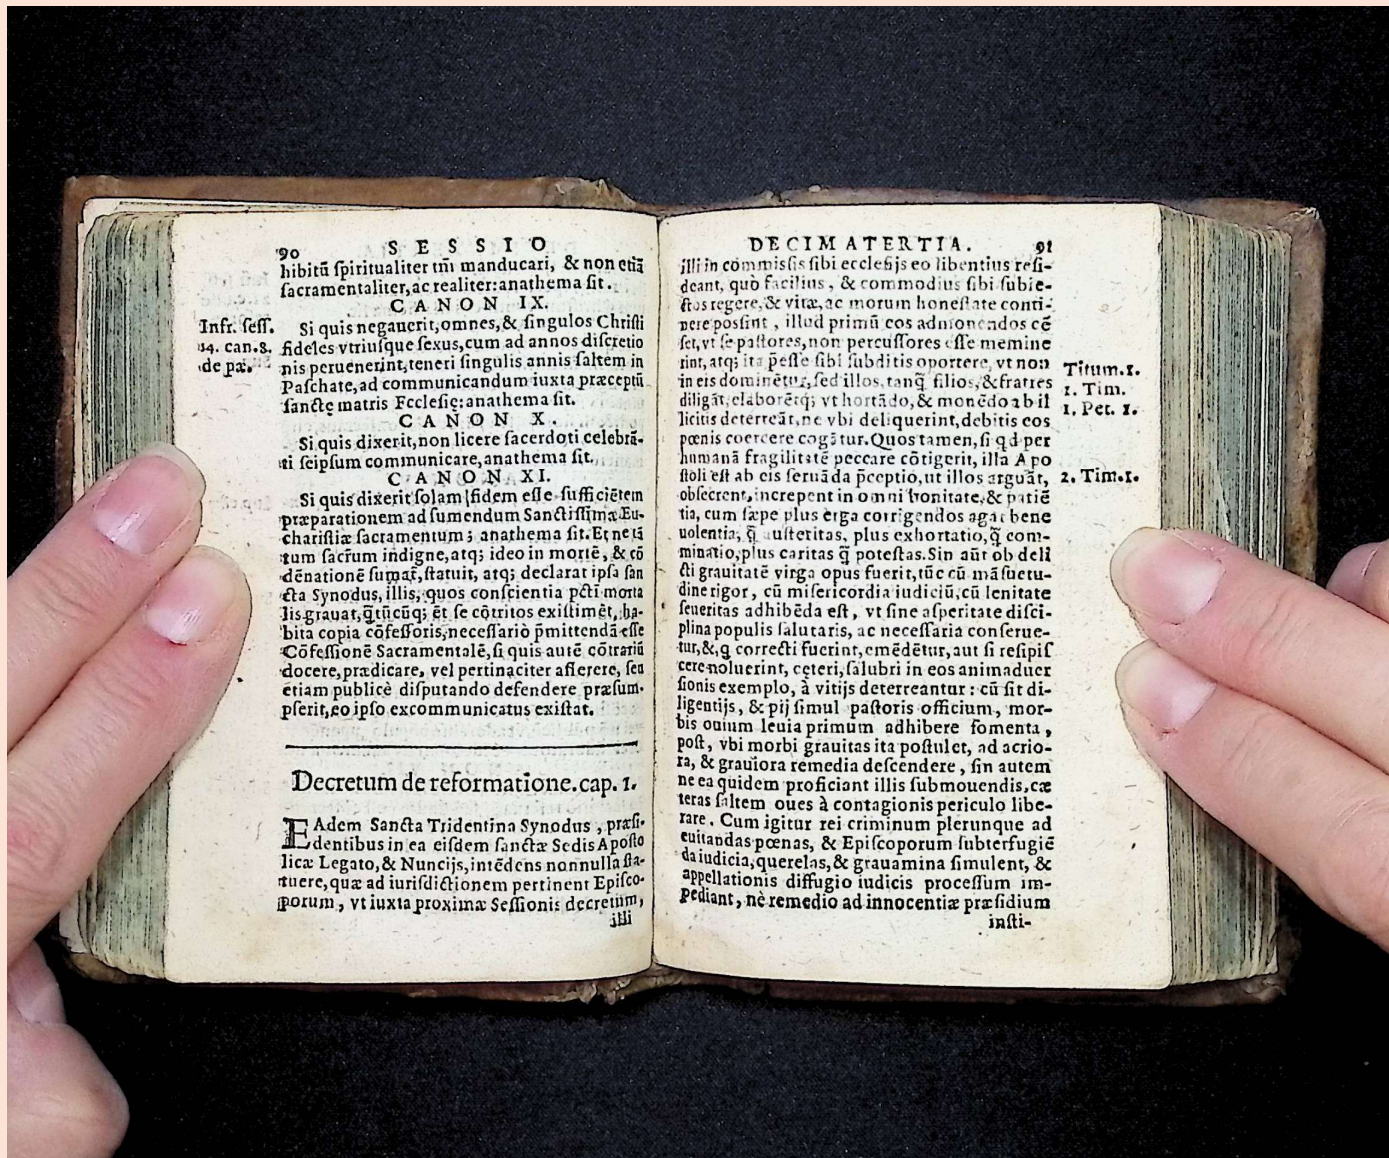 90 SESSIO
hibitū ſpiritualiter tm̄ manducari, & non etiā
ſacramentaliter, ac realiter: anathema ſit.
CANON IX.
Infr. ſeſſ.
14. can. 8.
de pæ.
Si quis negauerit, omnes, & ſingulos Chriſti
fideles vtriuſque ſexus, cum ad annos diſcretio
nis peruenerint, teneri ſingulis annis ſaltem in
Paſchate, ad communicandum iuxta præceptū
ſanctę matris Eccleſię: anathema ſit.
CANON X.
Si quis dixerit, non licere ſacerdoti celebrā-
ti ſeipſum communicare, anathema ſit.
CANON XI.
Si quis dixerit ſolam fidem eſſe ſufficiētem
præparationem ad ſumendum Sanctiſſimæ Eu-
chariſtiæ ſacramentum; anathema ſit. Et ne tā
tum ſacrum indigne, atq; ideo in mortē, & cō
dēnationē ſumat, ſtatuit, atq; declarat ipſa ſan
cta Synodus, illis, quos conſcientia pcti morta
lis grauat, q̄tūcūq; ēt ſe cōtritos exiſtimēt, ha-
bita copia cōfeſſoris, neceſſariò p̄mittendā eſſe
Cōfeſſionē Sacramentalē, ſi quis autē cōtrariū
docere, prædicare, vel pertinaciter aſſerere, ſeu
etiam publicè diſputando defendere præſum-
pſerit, eo ipſo excommunicatus exiſtat.
Decretum de reformatione. cap. 1.
EAdem Sancta Tridentina Synodus, præſi-
dentibus in ea eiſdem ſanctæ Sedis Apoſto
licæ Legato, & Nuncijs, intēdens nonnulla ſta-
tuere, quæ ad iuriſdictionem pertinent Epiſco-
porum, vt iuxta proximæ Seſſionis decretum,
illi
DECIMATERTIA. 91
illi in commiſſis ſibi eccleſijs eo libentius reſi-
deant, quò facilius, & commodius ſibi ſubie-
ctos regere, & vitæ, ac morum honeſtate conti-
nere poſſint, illud primū eos admonendos cē
ſet, vt ſe paſtores, non percuſſores eſſe memine
rint, atq; ita p̄eſſe ſibi ſubditis oportere, vt non
in eis dominētur, ſed illos, tanq̄ filios, & fratres
diligāt, elaborētq; vt hortādo, & monēdo ab il
licitis deterreāt, ne vbi deliquerint, debitis eos
pœnis coercere cogātur. Quos tamen, ſi qd per
humanā fragilitatē peccare cōtigerit, illa Apo
ſtoli eſt ab eis ſeruāda p̄ceptio, ut illos arguāt,
obſecrent, increpent in omni bonitate, & patiē
tia, cum ſæpe plus erga corrigendos agat bene
uolentia, q̄ auſteritas, plus exhortatio, q̄ com-
minatio, plus caritas q̄ poteſtas. Sin aūt ob deli
cti grauitatē virga opus fuerit, tūc cū māſuetu-
dine rigor, cū miſericordia iudiciū, cū lenitate
ſeueritas adhibēda eſt, vt ſine aſperitate diſci-
plina populis ſalutaris, ac neceſſaria conſerue-
tur, &, q correcti fuerint, emēdētur, aut ſi reſipiſ
cere noluerint, cęteri, ſalubri in eos animaduer
ſionis exemplo, à vitijs deterreantur: cū ſit di-
ligentijs, & pij ſimul paſtoris officium, mor-
bis ouium leuia primum adhibere fomenta,
poſt, vbi morbi grauitas ita poſtulet, ad acrio-
ra, & grauiora remedia deſcendere, ſin autem
ne ea quidem proficiant illis ſubmouendis, cæ
teras ſaltem oues à contagionis periculo libe-
rare. Cum igitur rei criminum plerunque ad
euitandas pœnas, & Epiſcoporum ſubterfugiē
da iudicia, querelas, & grauamina ſimulent, &
appellationis diffugio iudicis proceſſum im-
pediant, nè remedio ad innocentiæ præſidium
inſti-
Titum. 1.
1. Tim.
1. Pet. 1.
2. Tim. 1.